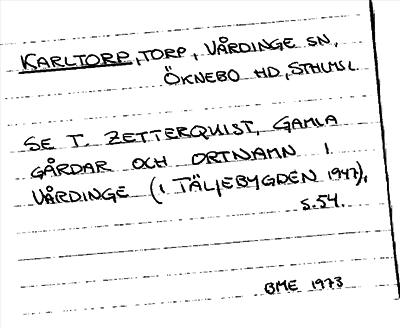 KARLTORP, TORP, VÅRDINGE SN,
ÖKNEBO HD, STHLMSL
SE T. ZETTERQUIST, GAMLA
GÅRDAR OCH ORTNAMN I
VÅRDINGE (I TÄLJEBYGDEN 1947),
S.54.
BME 1973